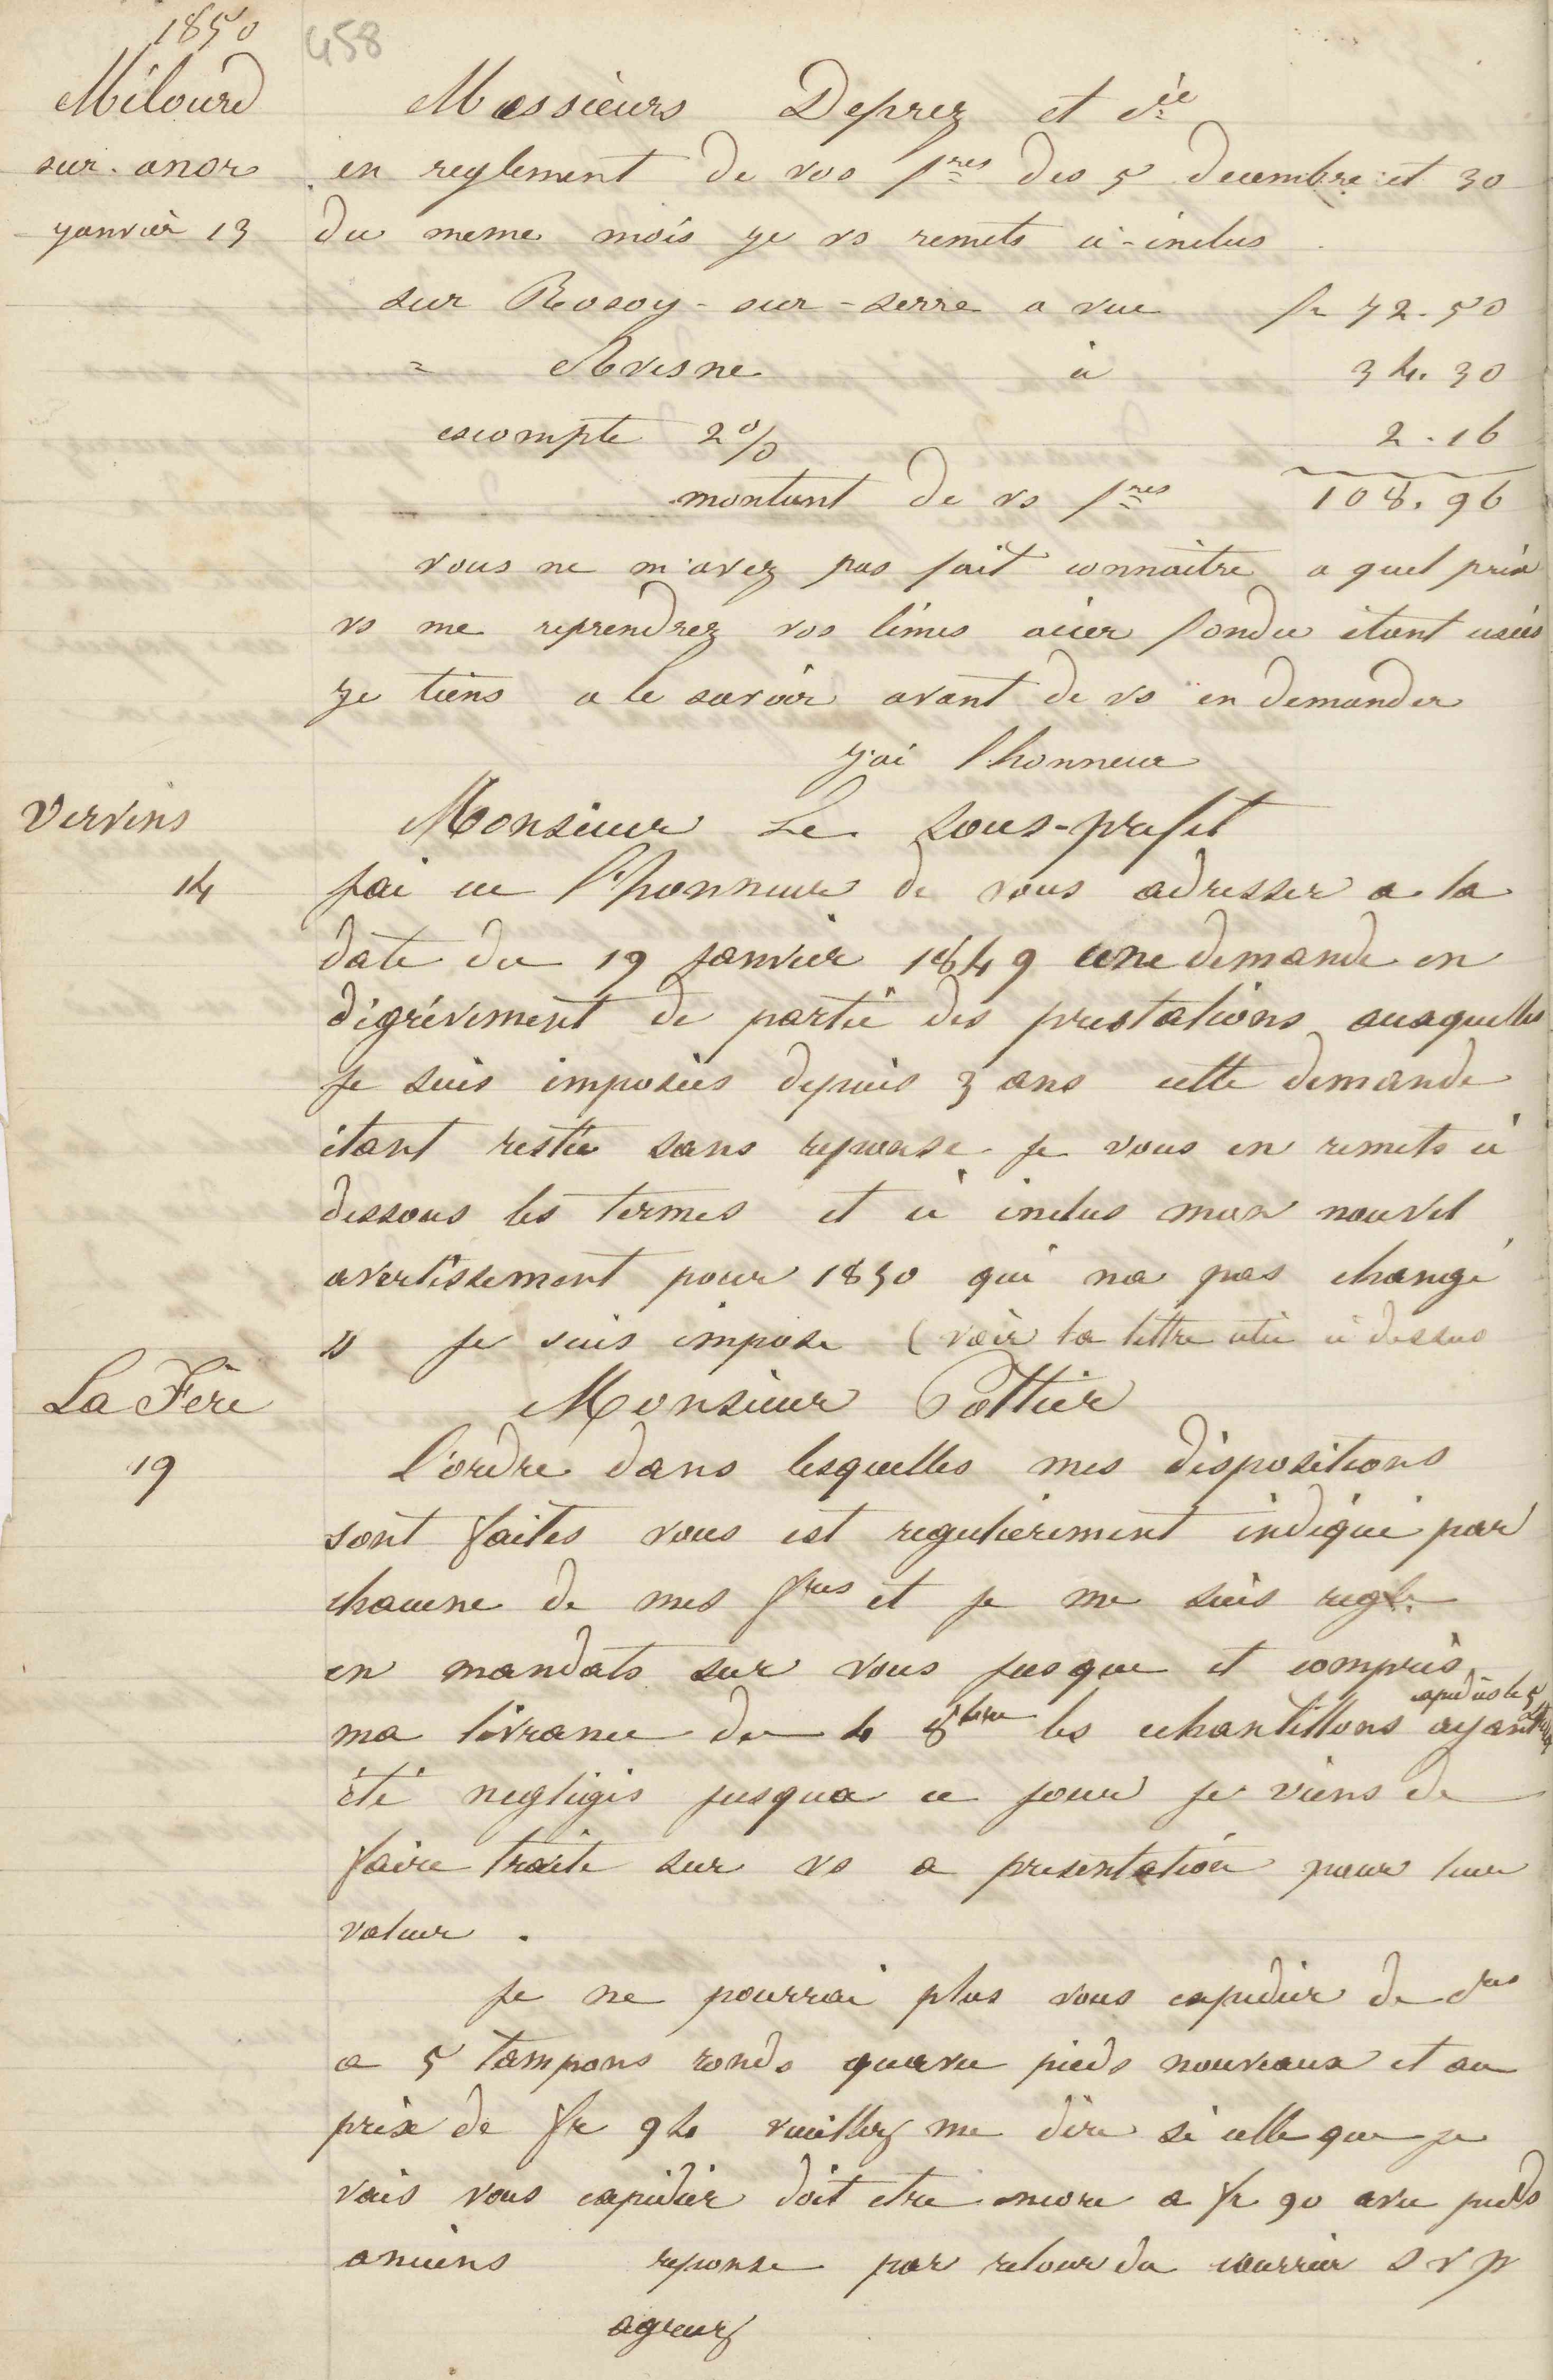 1850
458
Milourd
Messieurs Deprez et Cie
sur anor
en reglement de vos fres des 5 decembre et 30
janvier 13
du meme mois je vs remets ci-inclus
sur Rosoy-sur-serre a vue fr 72.50
= Avesne à 34.30
escompte 2% 2.16
montant de vs fres 108.96
vous ne m'avez pas fait connaitre a quel prix
vs me reprendrez vos limes acier fondu étant usées
je tiens a le savoir avant de vs en demander
j'ai l'honneur
Vervins
Monsieur Le sous-prefet
14
j'ai eu l'honneur de vous adresser a la
date du 19 janvier 1849 une demande en
dégrévement de partie des prestations auxquelles
je suis imposées depuis 3 ans cette demande
étant restée sans reponse je vous en remets ci
dessous les termes et ci inclus mon nouvel
avertissement pour 1850 qui na pas changé
" je suis impose (voir la lettre citée ci dessus
La Fère
Monsieur Pottier
19
l'ordre dans lesquelles mes dispositions
sont faites vous est regulièrement indiqué par
chacune de mes fres et je me suis regle
en mandats sur vous jusque et compris
ma livrance du 4 8bre les echantillons ayant
expédiés le 5
été negligés jusqua ce jour je viens de
faire traite sur vs a presentation pour leur
valeur .
je ne pourrai plus vous expedier de
a 5 tampons ronds quavec pieds nouveaux et au
prix de fr 94 veuillez me dire si celle que je
vais vous expédier doit etre encore a fr 90 avec pieds
anciens reponse par retour du courrier s v p
agreez